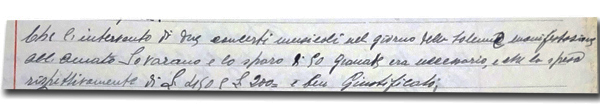 Che l'intervento di due concerti musicali nel giorno della solenne manifestazione
all' amato Sovrano e lo sparo di 50 granate era necessario, e che la spesa
rispettivamente di £. 450 e £ 200= e ben giustificata,